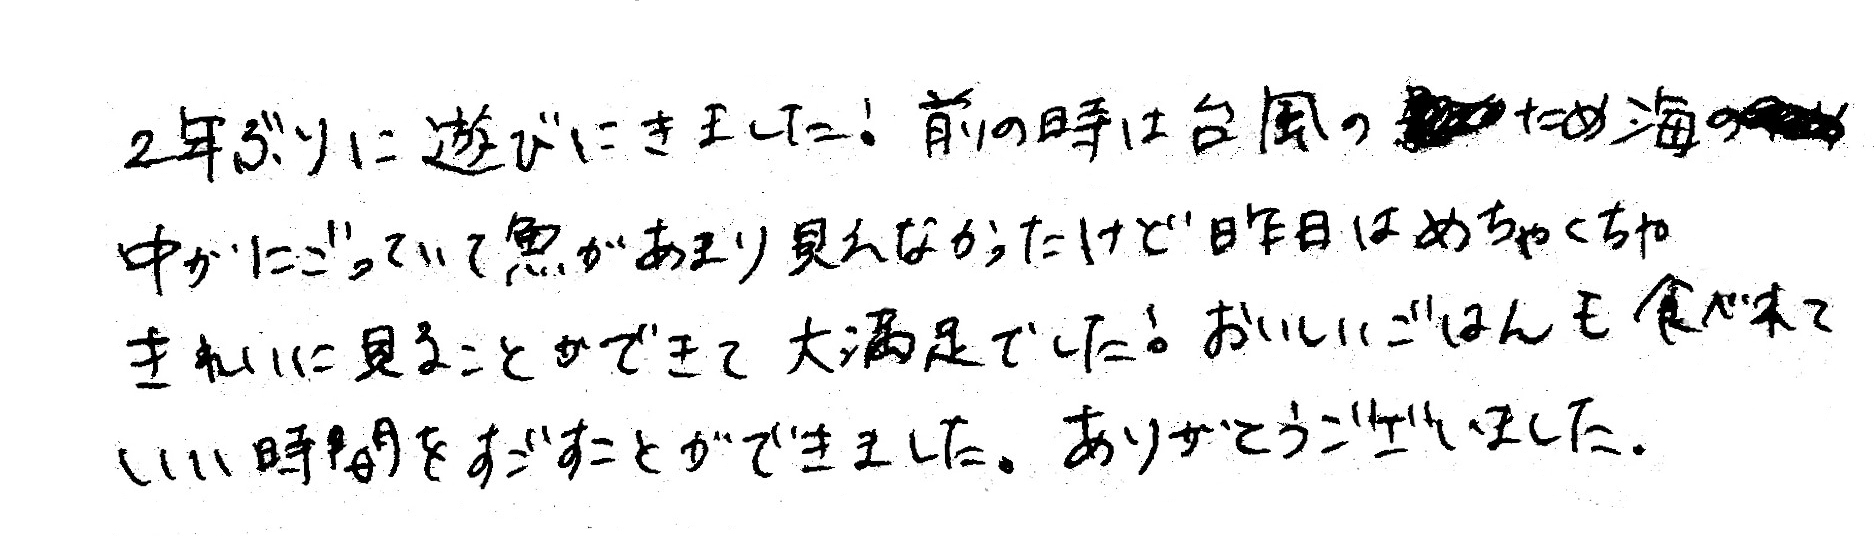 2年ぶりに遊びにきました!前の時は台風のため海の
中がにごっていて魚があまり見れなかったけど昨日はめちゃくちゃ
きれいに見ることができて大満足でした!おいしいごはんも食べ来て
いい時間をすごすことができました。ありがとうございました.